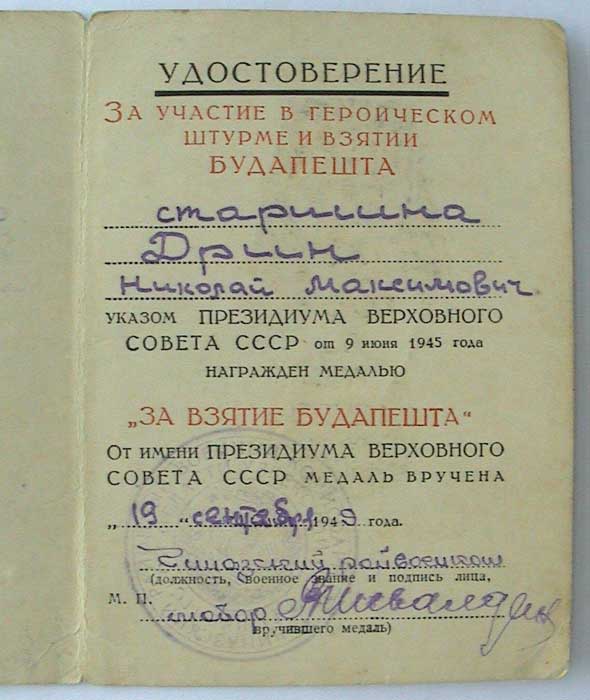 УДОСТОВЕРЕНИЕ
ЗА УЧАСТИЕ В ГЕРОИЧЕСКОМ
ШТУРМЕ И ВЗЯТИИ
БУДАПЕШТА
старшина
Дриин
Николай Максимович
УКАЗОМ ПРЕЗИДИУМА ВЕРХОВНОГО
СОВЕТА СССР от 9 июня 1945 года
НАГРАЖДЕН МЕДАЛЬЮ
„ЗА ВЗЯТИЕ БУДАПЕШТА"
От имени ПРЕЗИДИУМА ВЕРХОВНОГО
СОВЕТА СССР МЕДАЛЬ ВРУЧЕНА
„19" сентября 1949 года.
райвоенком
(должность, военное звание и подпись лица,
М. П.
майор
вручившего медаль)